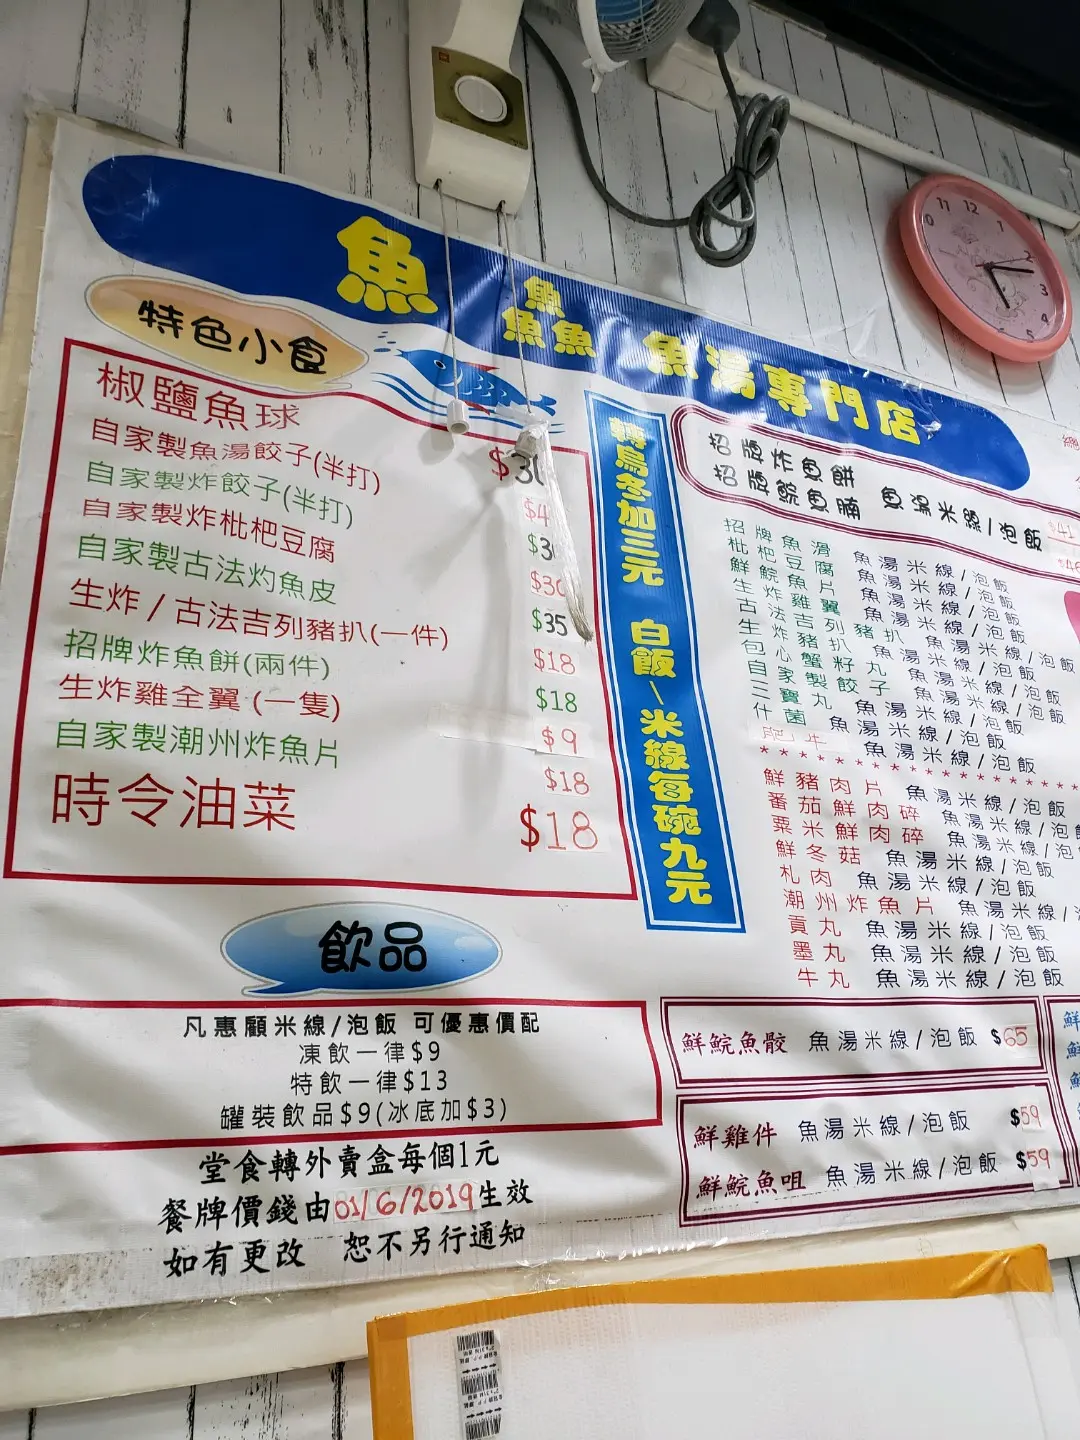 魚 魚魚魚 魚湯專門店
特色小食
椒鹽魚球 $30
自家製魚湯餃子(半打) $4
自家製炸餃子(半打) $3
自家製炸枇杷豆腐 $30
自家製古法灼魚皮 $35
生炸/古法吉列豬扒(一件) $18
招牌炸魚餅(兩件) $18
生炸雞全翼(一隻) $9
自家製潮州炸魚片 $18
時令油菜 $18
轉烏冬加三元 白飯\米線每碗九元
招牌炸魚餅
招牌鯇魚腩 魚湯米線/泡飯
$41
招牌魚滑 魚湯米線/泡飯
枇杷豆腐 魚湯米線/泡飯
鮮鯇魚片 魚湯米線/泡飯
生炸雞翼 魚湯米線/泡飯
古法吉列豬扒 魚湯米線/泡飯
生炸豬扒 魚湯米線/泡飯
包心蟹籽丸 魚湯米線/泡飯
自家製餃子 魚湯米線/泡飯
三寶丸 魚湯米線/泡飯
什菌 魚湯米線/泡飯
肥牛 魚湯米線/泡飯
鮮豬肉片 魚湯米線/泡飯
番茄鮮肉碎 魚湯米線/泡
粟米鮮肉碎 魚湯米線/泡
鮮冬菇 魚湯米線/泡飯
札肉 魚湯米線/泡飯
潮州炸魚片 魚湯米線/
貢丸 魚湯米線/泡飯
墨丸 魚湯米線/泡飯
牛丸 魚湯米線/泡飯
鮮鯇魚骹 魚湯米線/泡飯 $65
鮮雞件 魚湯米線/泡飯 $59
鮮鯇魚咀 魚湯米線/泡飯 $59
飲品
凡惠顧米線/泡飯 可優惠價配
凍飲一律$9
特飲一律$13
罐裝飲品$9(冰底加$3)
堂食轉外賣盒每個1元
餐牌價錢由01/6/2019生效
如有更改 恕不另行通知
11 12 1 2 3 4 5